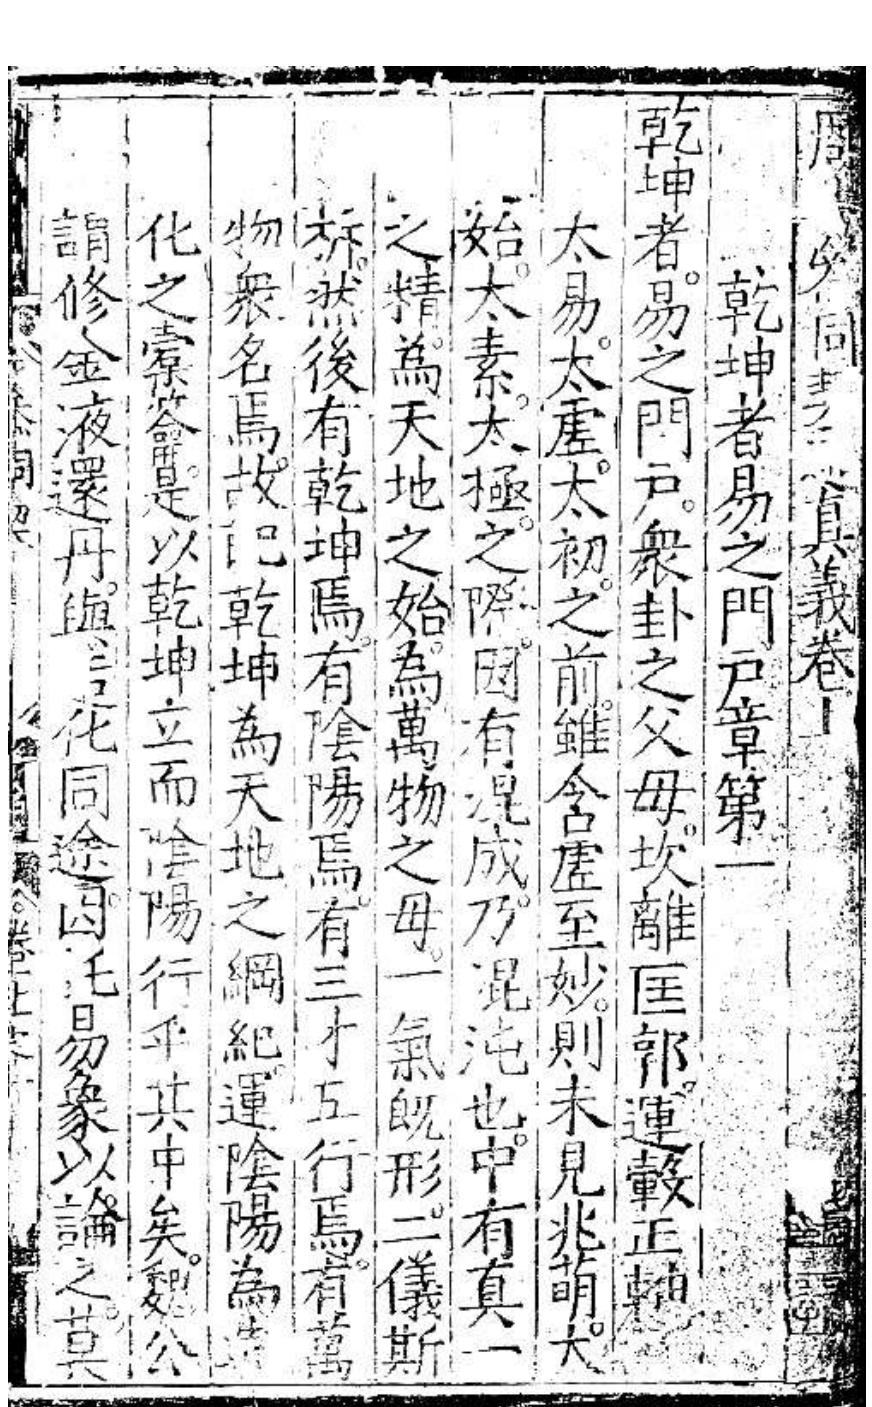 周易參同契 真義卷上
乾坤者易之門戶章第一
乾坤者易之門戶衆卦之父母坎離匡郭運轂正軸
太易太虛太初之前雖含虛至妙則未見兆萌大
始太素太極之際因有混成乃混沌也中有真一
之精為天地之始為萬物之母一氣既形二儀斯
析然後有乾坤焉有陰陽焉有三才五行焉有萬
物衆名焉故配乾坤為天地之綱紀運陰陽為
化之橐籥是以乾坤立而陰陽行乎其中矣魏公
謂修金液還丹與造化同途因托易象以論之莫